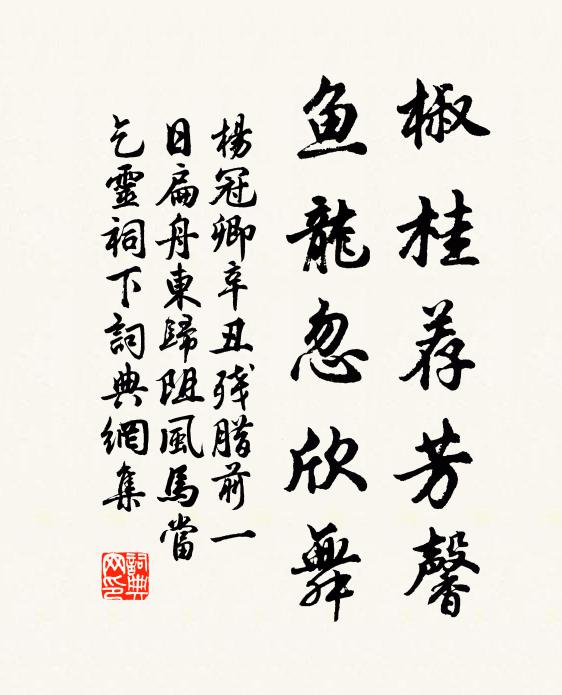 椒桂荐芳馨
鱼龍忽欣舞
楊冠卿辛丑残腊前一
日扁舟東歸阻風馬當
乞靈祠下詞典網集
詞典
网印